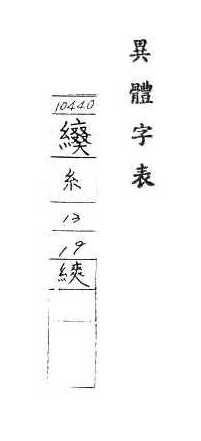 異體字表
10440
糸
13
19
縔